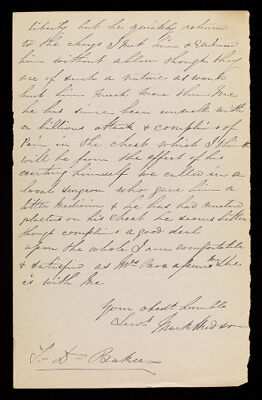 liberty but he quickly returns
to the charge I met him &
him without a blow though they
are of such a nature as would
hurt him much more than me
he has since been unwell with
a billious attack & complains of
Pain in the chest which I think
will be from the effect of his
exerting himself we called in a
local surgeon who gave him a
little Medicine & he has had mustard
plasters on his chest he seems better
though complains a good deal
upon the whole I am comfortable
& satisfied as Mrs she
is with me
Your obedt humble
Servt Mark Hudson
To Dr Baker